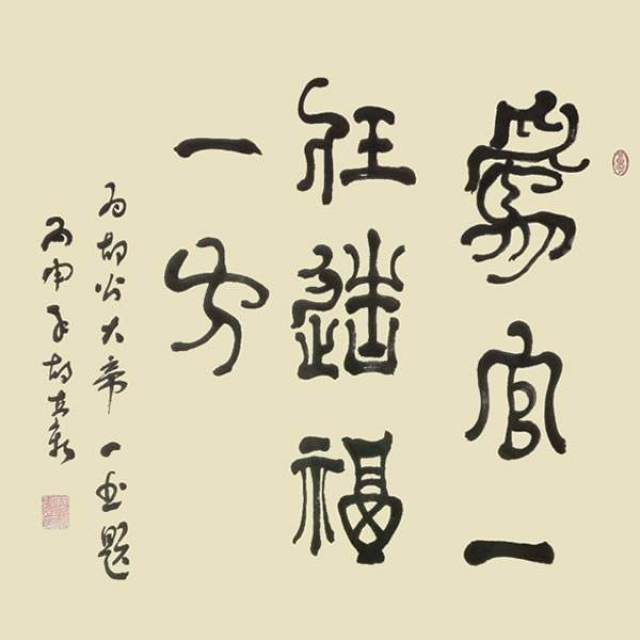 為官一
任造福
一方
为胡公大帝一书题
丙申年胡